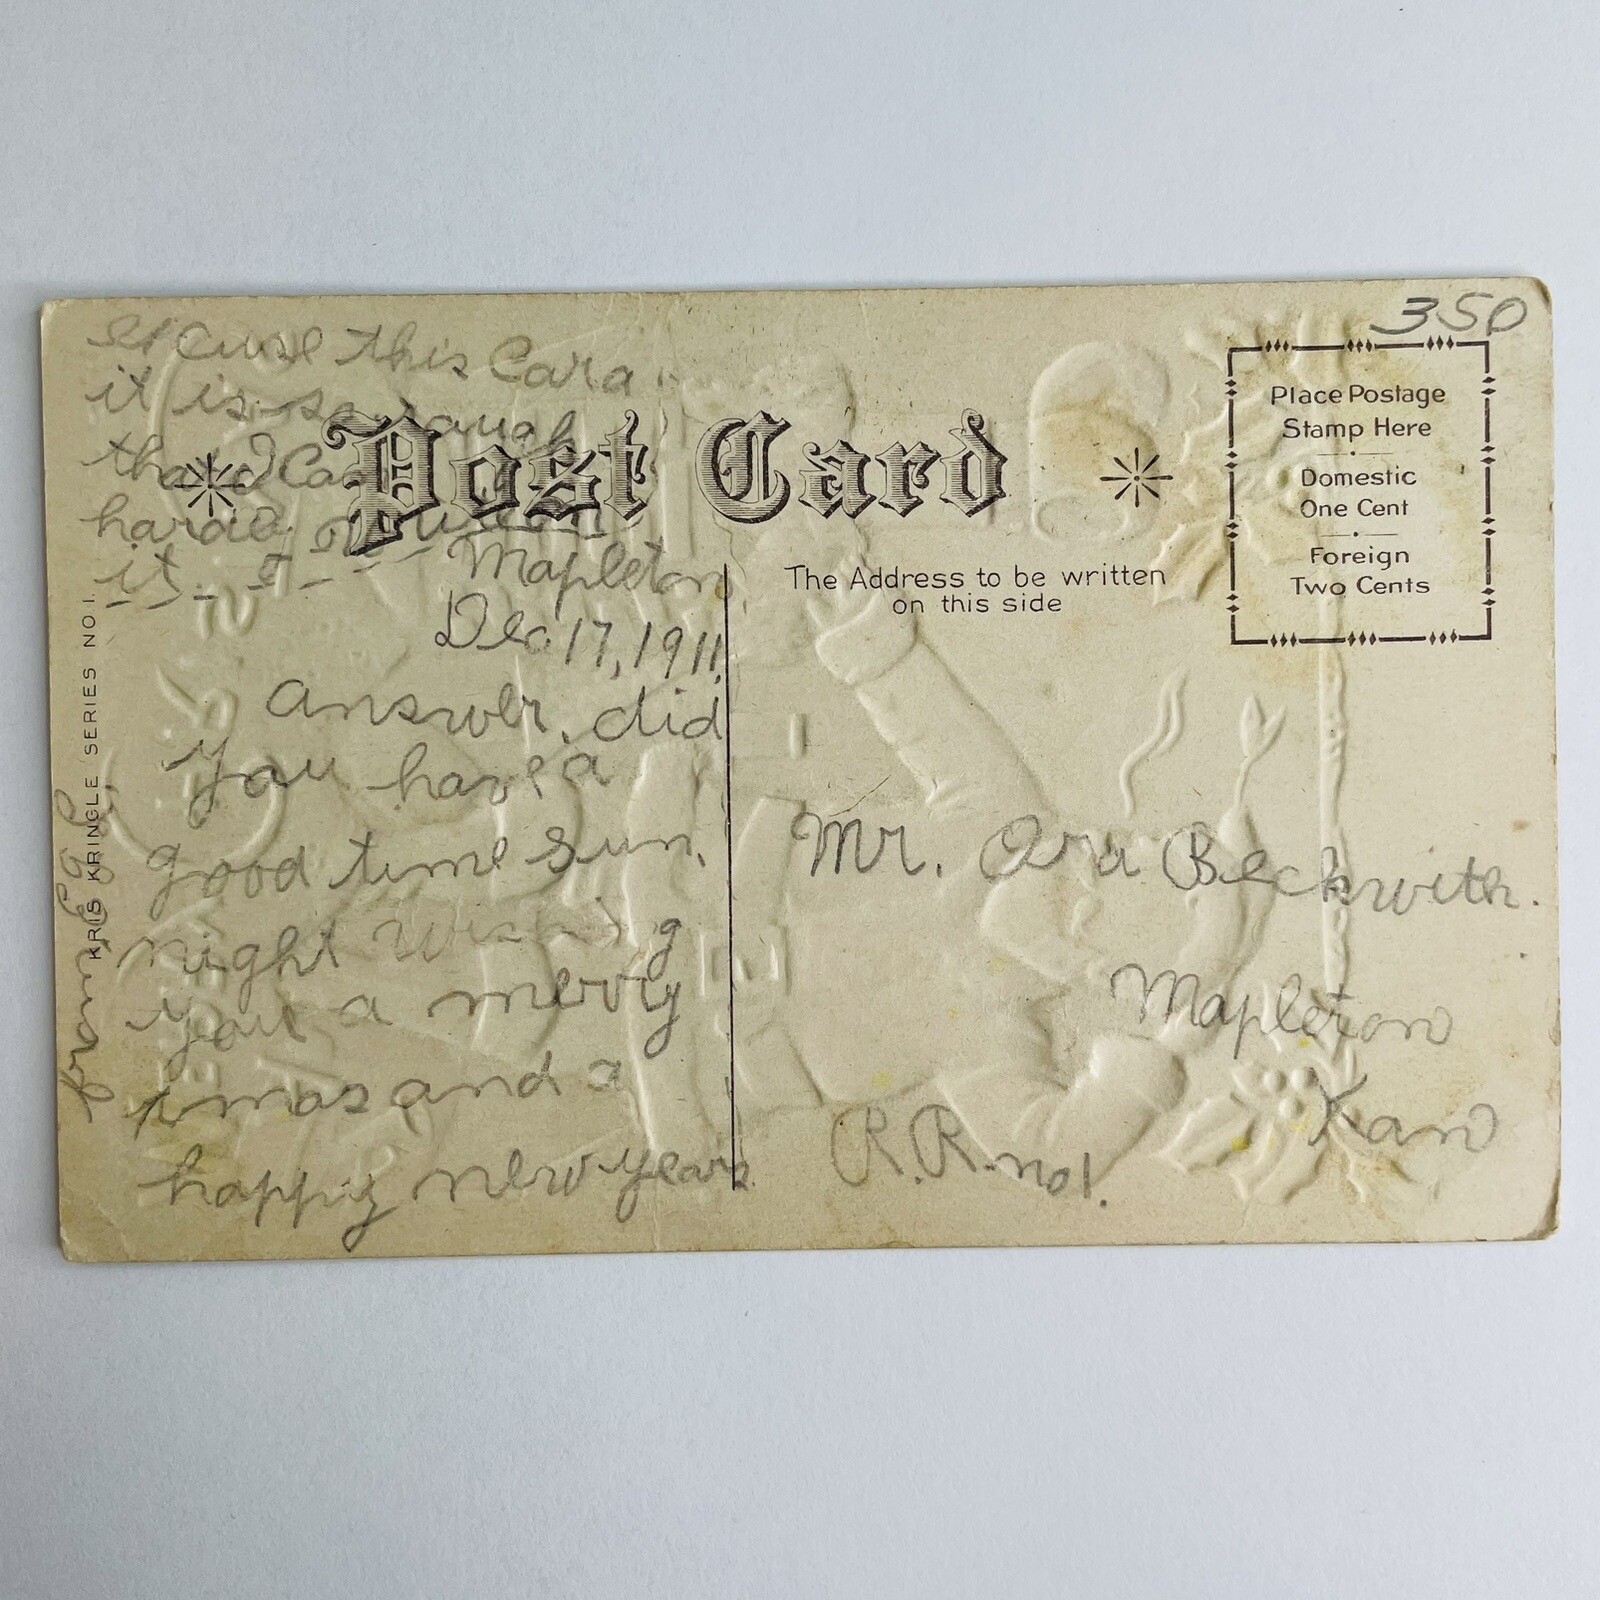 excuse this Card
it is so rough
that I Can
hardly write on
it.
Mapleton
Dec 17, 1911
answer. did
you have a
good time Sun.
night wishing
you a merry
xmas and a
happy new years
from
KRIS KRINGLE SERIES NO 1.
Post Card
The Address to be written
on this side
350
Place Postage
Stamp Here
Domestic
One Cent
Foreign
Two Cents
Mr. Ora Beckwith.
Mapleton
Kans
R.R. no 1.